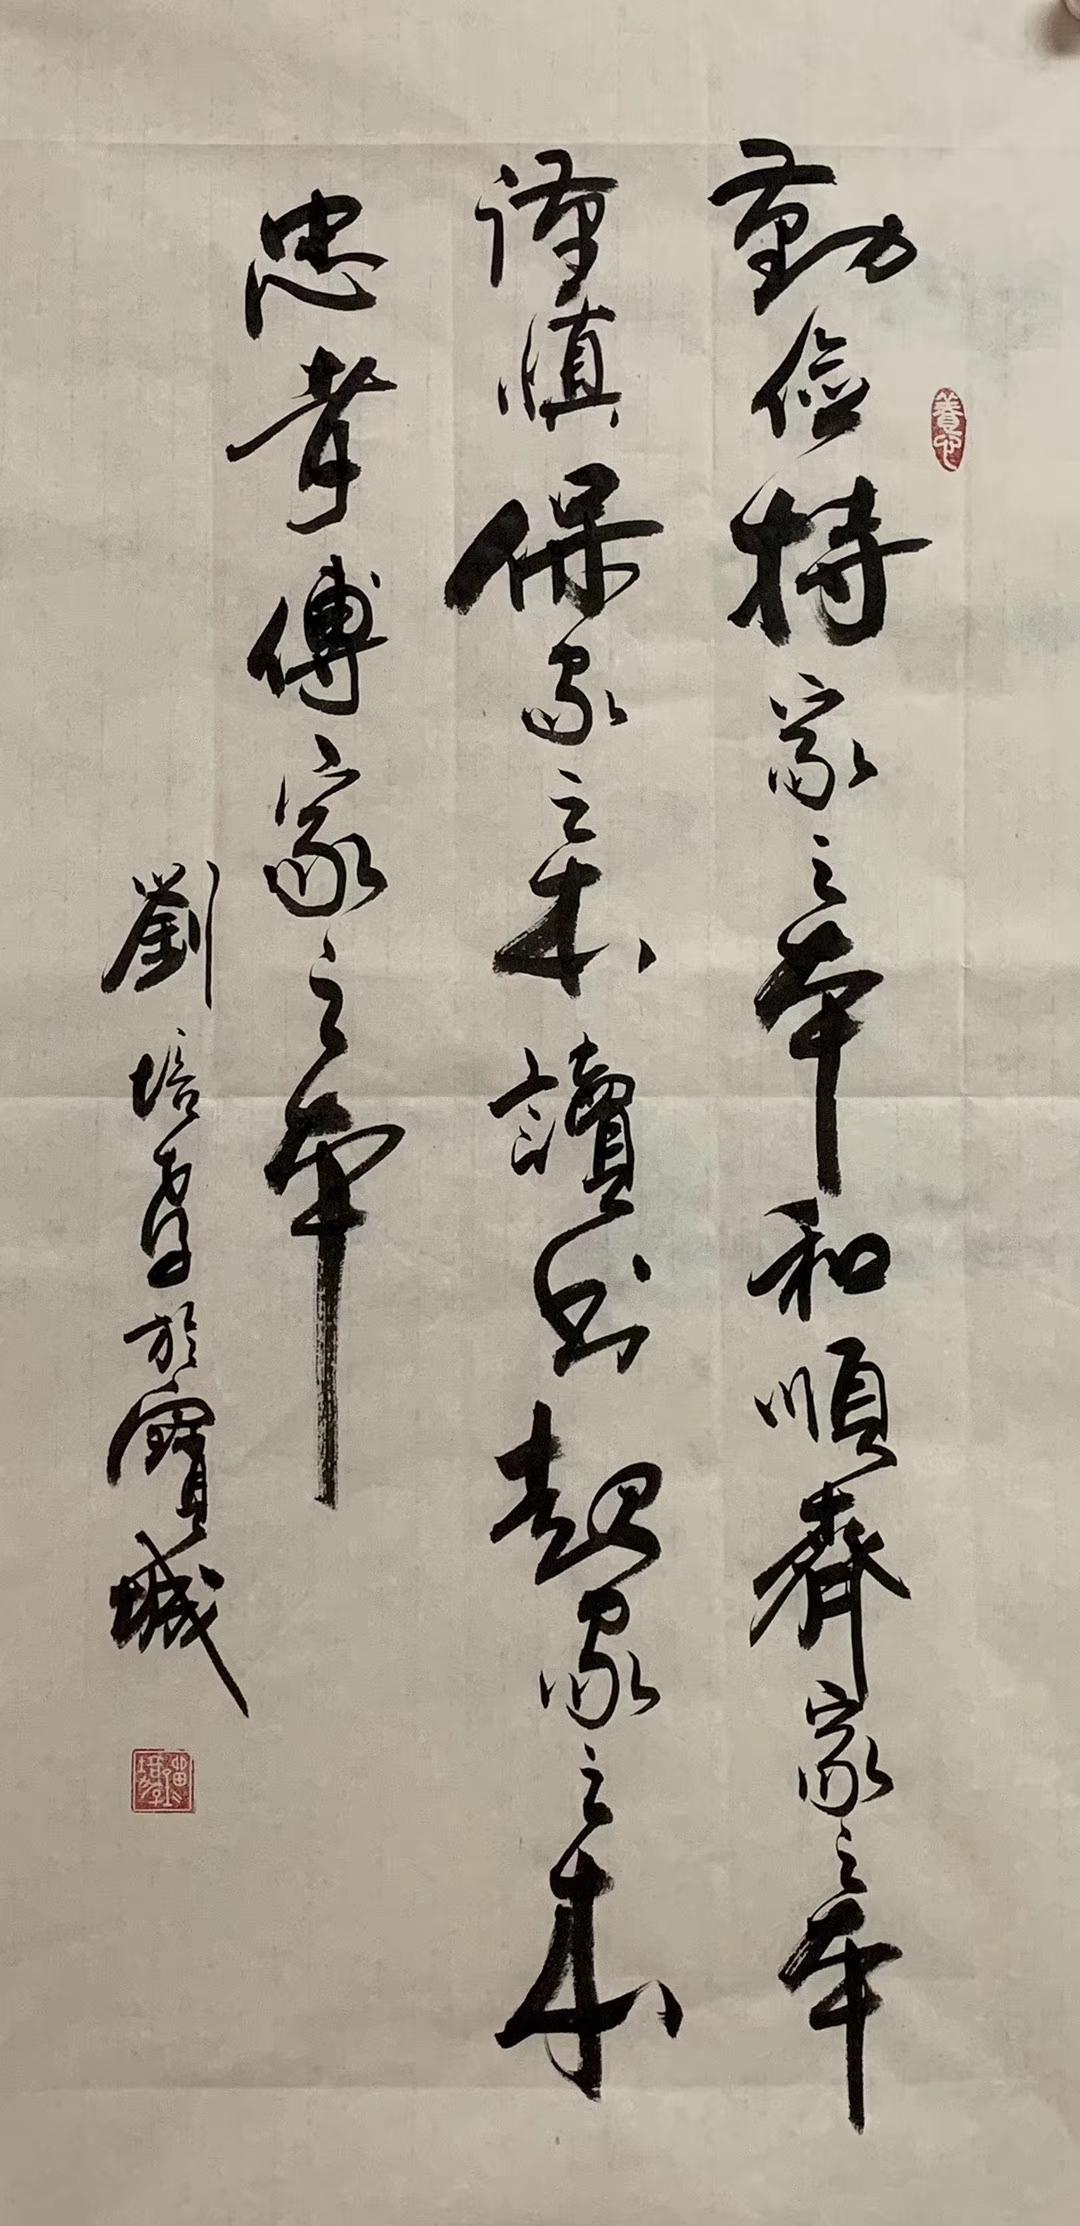 勤儉持家之本和順齊家之本
謹慎保家之本讀書起家之本
忠孝傳家之本
劉培孝於寶城
養心